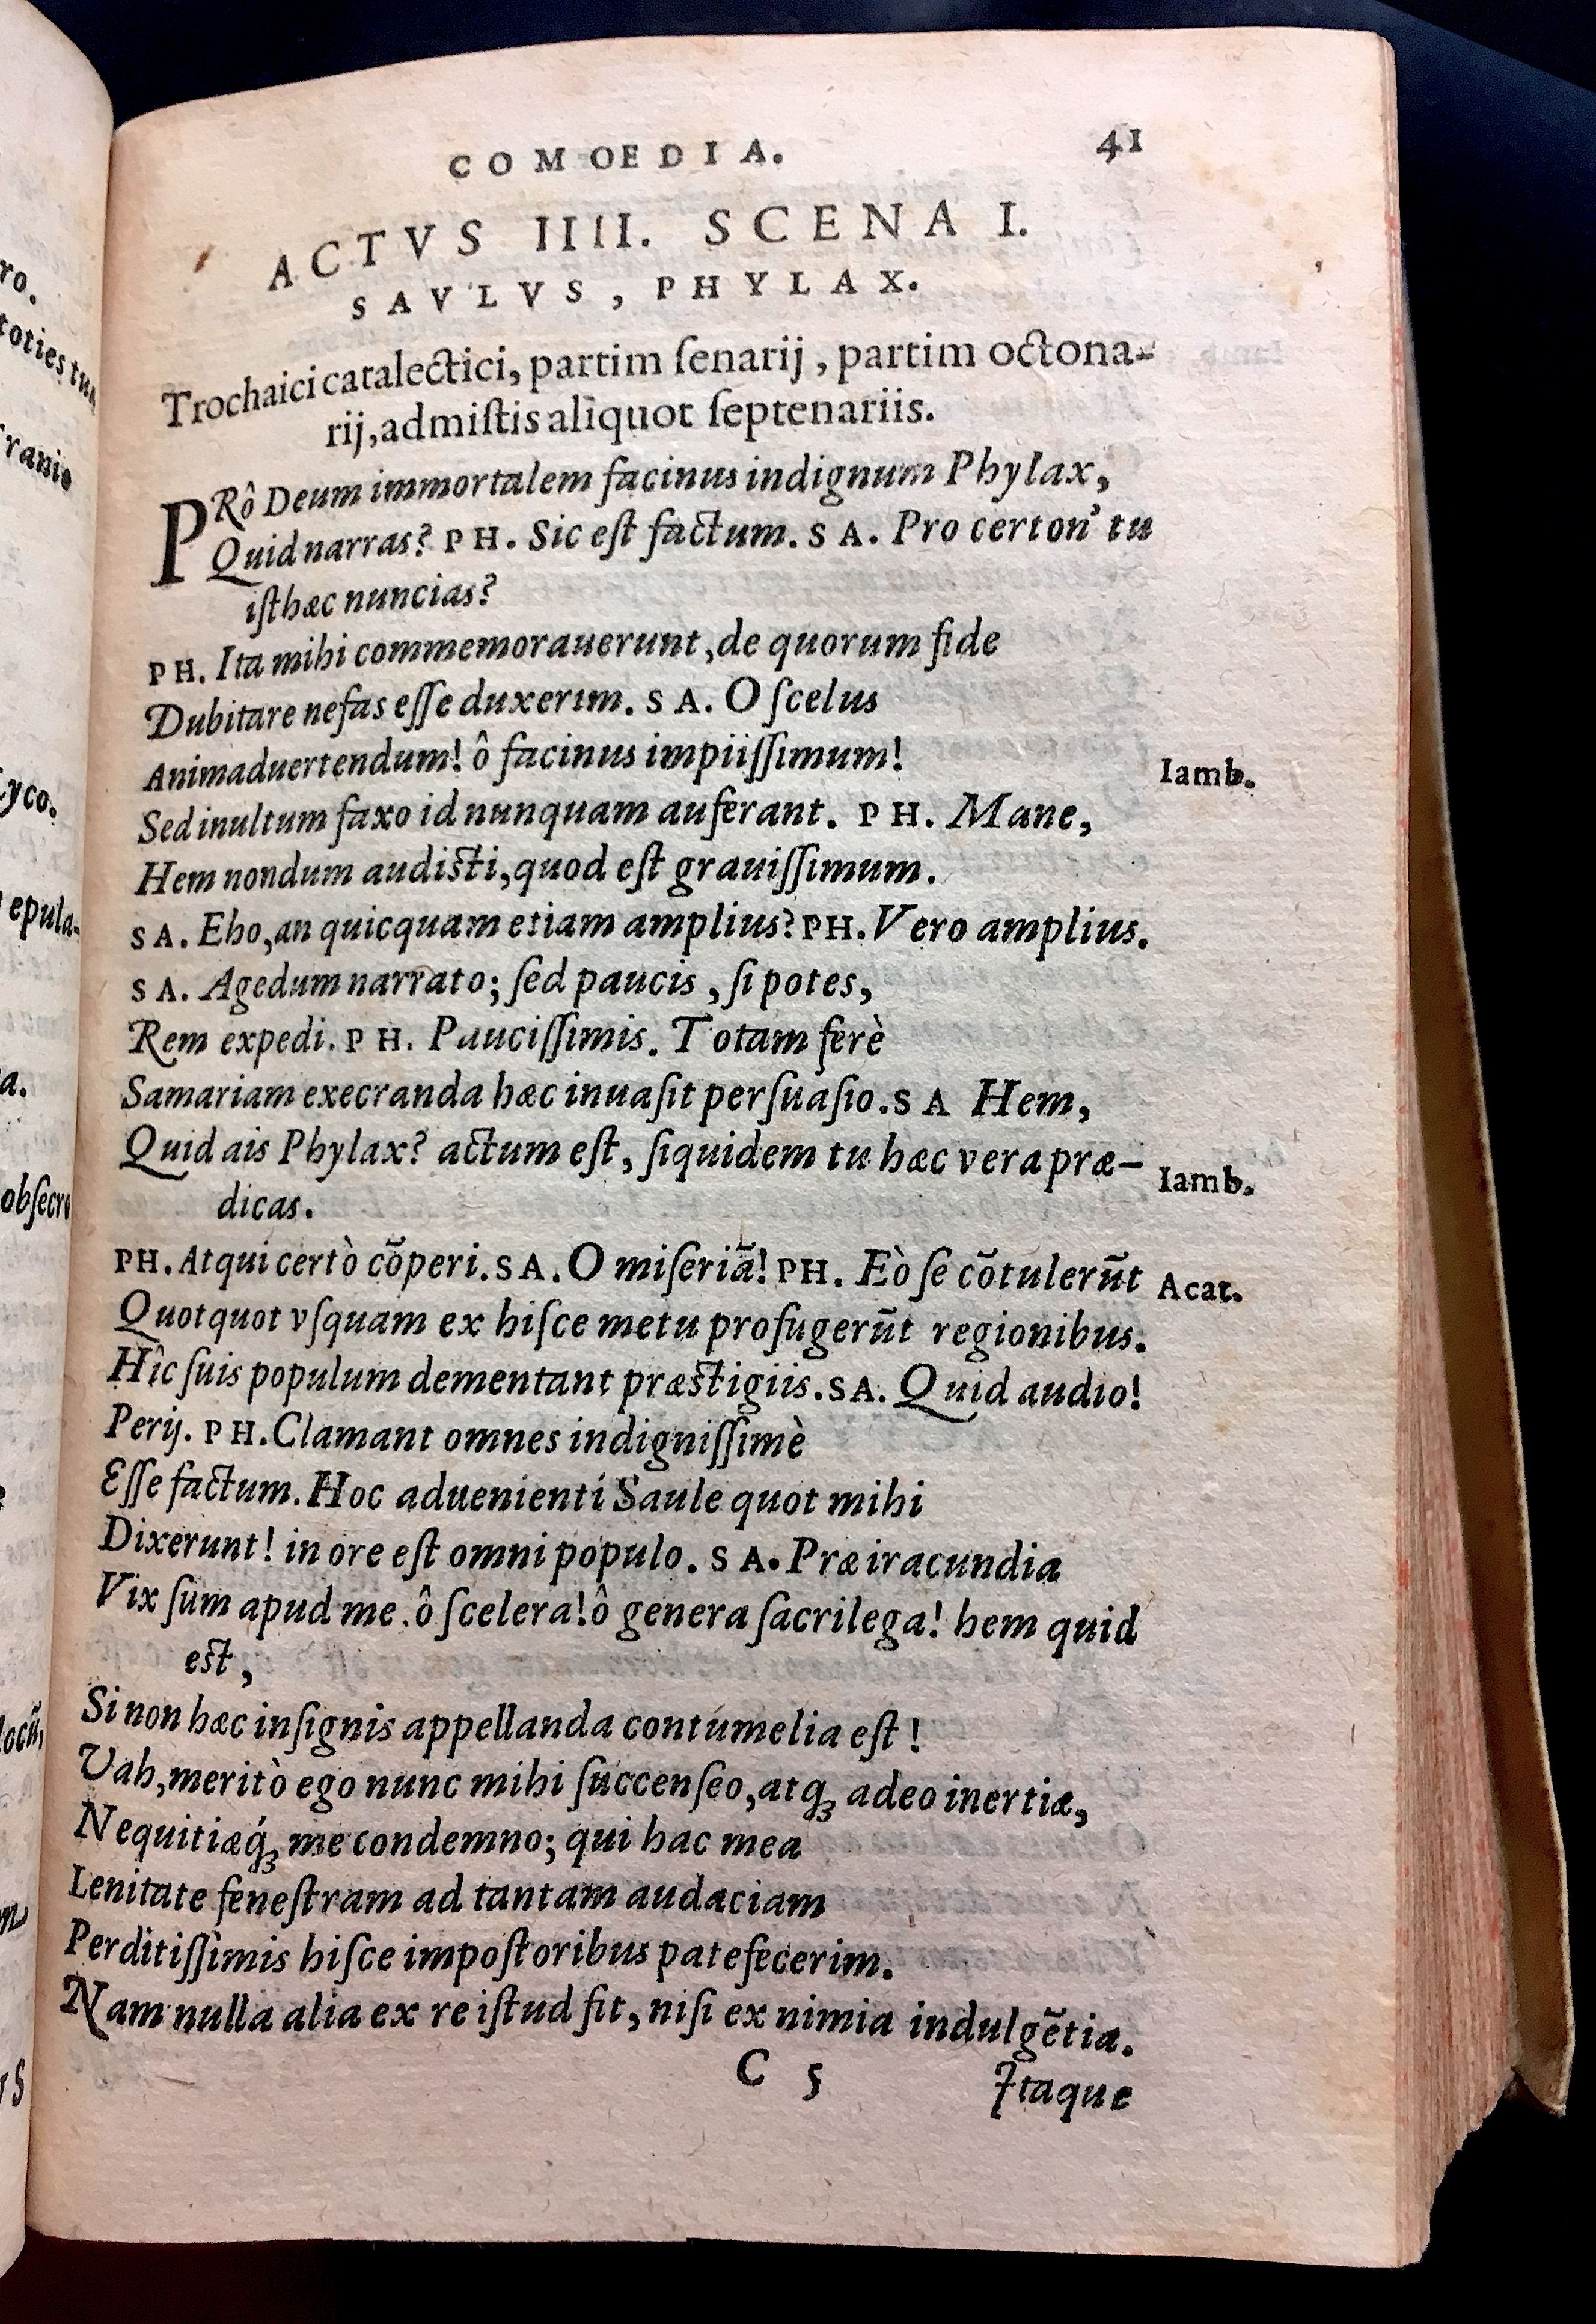 COMOEDIA. 41
ACTVS IIII. SCENA I.
SAVLVS, PHYLAX.
Trochaici catalectici, partim ſenarij, partim octona-
rij, admiſtis aliquot ſeptenariis.
PRô Deum immortalem facinus indignum Phylax,
Quid narras? PH. Sic eſt factum. SA. Pro certon' tu
iſthæc nuncias?
PH. Ita mihi commemorauerunt, de quorum fide
Dubitare nefas eſſe duxerim. SA. O ſcelus
Animaduertendum! ô facinus impiiſſimum! Iamb.
Sed inultum faxo id nunquam auferant. PH. Mane,
Hem nondum audiſti, quod eſt grauiſſimum.
SA. Eho, an quicquam etiam amplius? PH. Vero amplius.
SA. Agedum narrato; ſed paucis, ſi potes,
Rem expedi. PH. Pauciſſimis. Totam ferè
Samariam execranda hæc inuaſit perſuaſio. SA Hem,
Quid ais Phylax? actum eſt, ſiquidem tu hæc vera præ- Iamb.
dicas.
PH. Atqui certò cõperi. SA. O miſeriã! PH. Eò ſe cõtulerũt Acat.
Quotquot vſquam ex hiſce metu profugerũt regionibus.
Hîc ſuis populum dementant præſtigiis. SA. Quid audio!
Perij. PH. Clamant omnes indigniſſimè
Eſſe factum. Hoc aduenienti Saule quot mihi
Dixerunt! in ore eſt omni populo. SA. Præ iracundia
Vix ſum apud me. ô ſcelera! ô genera ſacrilega! hem quid
eſt,
Si non hæc inſignis appellanda contumelia eſt!
Vah, meritò ego nunc mihi ſuccenſeo, atq; adeo inertiæ,
Nequitiæq́; me condemno; qui hac mea
Lenitate feneſtram ad tantam audaciam
Perditiſſimis hiſce impoſtoribus patefecerim.
Nam nulla alia ex re iſtud fit, niſi ex nimia indulgẽtia.
C 5 Itaque
ro.
toties tua
epula-
a.
obſecro